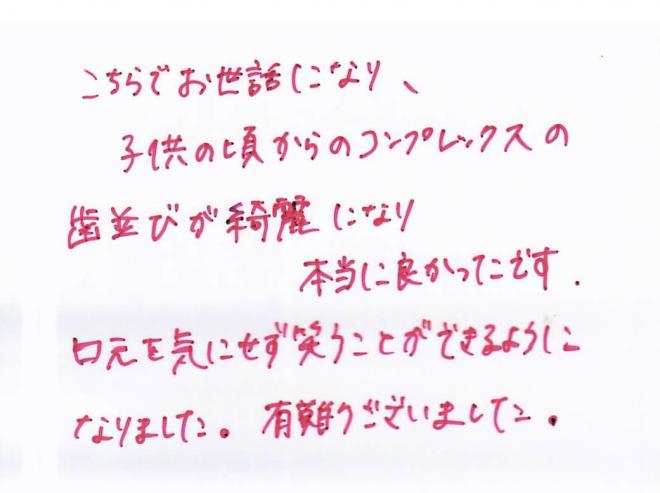 こちらでお世話になり、
子供の頃からのコンプレックスの
歯並びが綺麗になり
本当に良かったです.
口元を気にせず笑うことができるように
なりました。有難うございました。